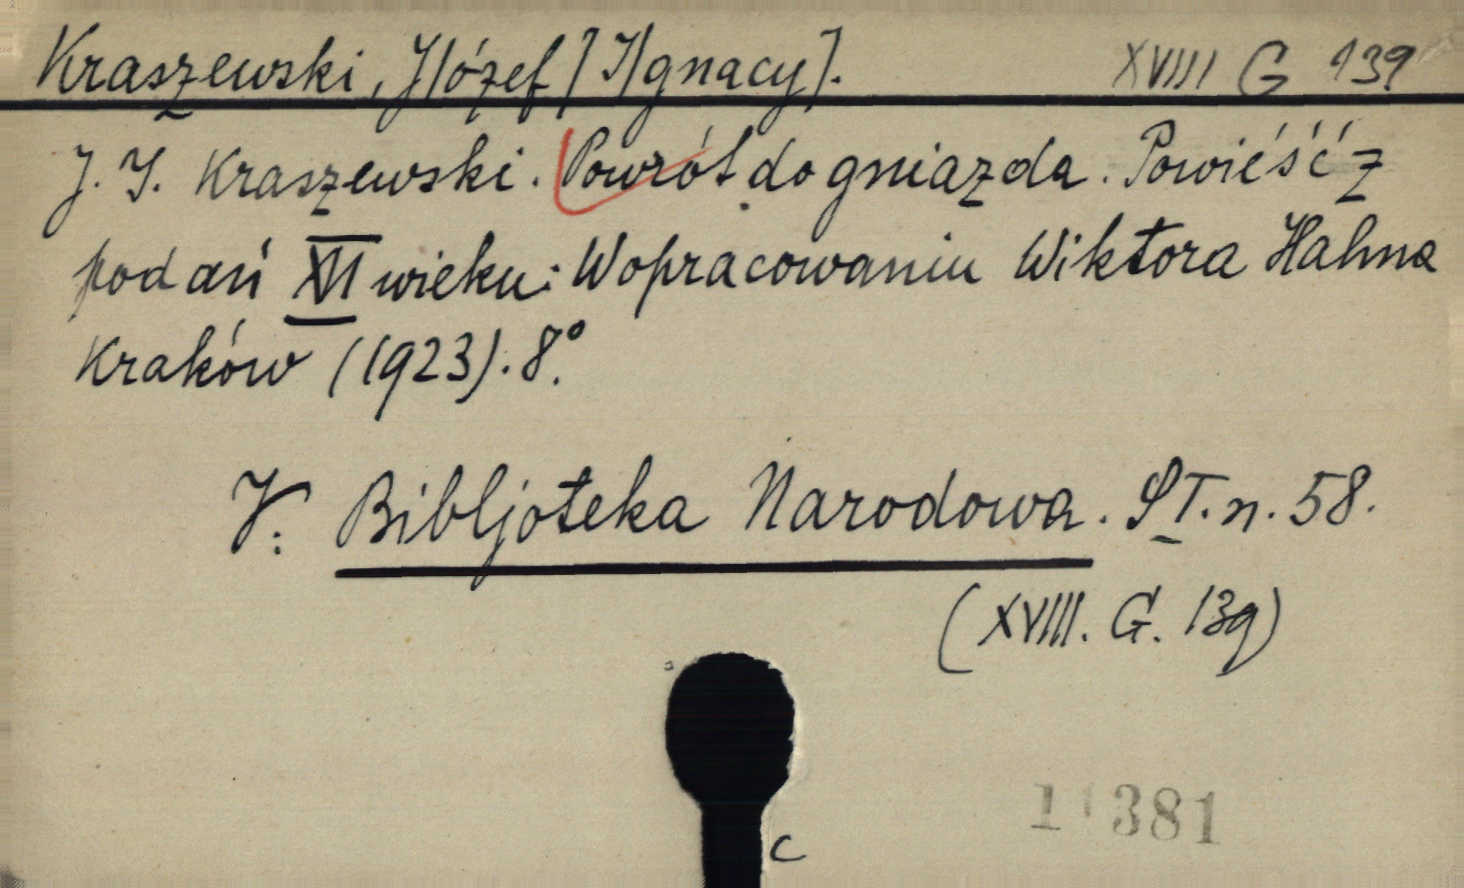 Kraszewski, J/ózef/ I/gnacy/. XVIII G 139
J. I. Kraszewski. Powrót do gniazda. Powieść z
podań XII wieku: W opracowaniu Wiktora Hahna
Kraków (1923). 8°.
V: Bibljoteka Narodowa. S I. n. 58.
(XVIII. G. 139)
381
C